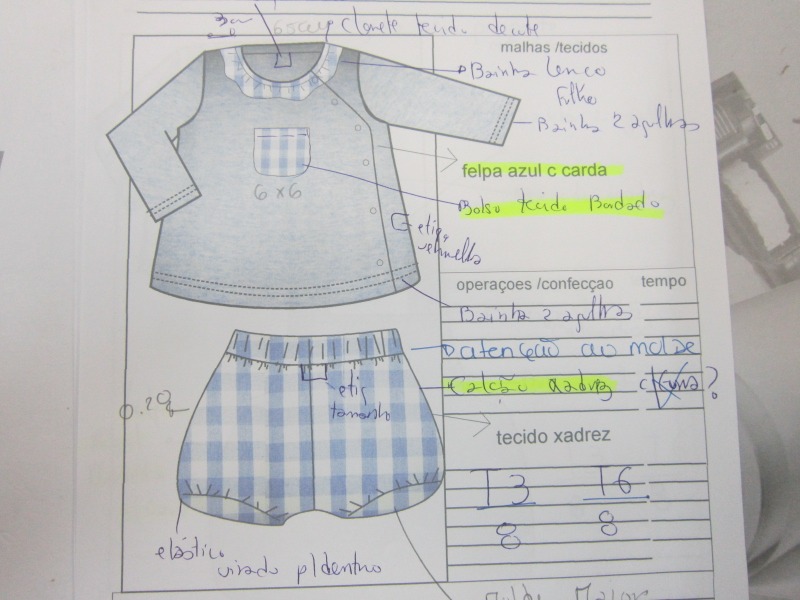 tecido
malhas /tecidos
Bainha
Bainha 2 agulhas
felpa azul c carda
Bolso tecido Bordado
6 x 6
etiq
vermelha
operaçoes /confecçao tempo
Bainha 2 agulhas
atenção ao molde
Calção xadrez ?
etiq
tamanho
tecido xadrez
T3 T6
8 8
elástico
virado p/dentro